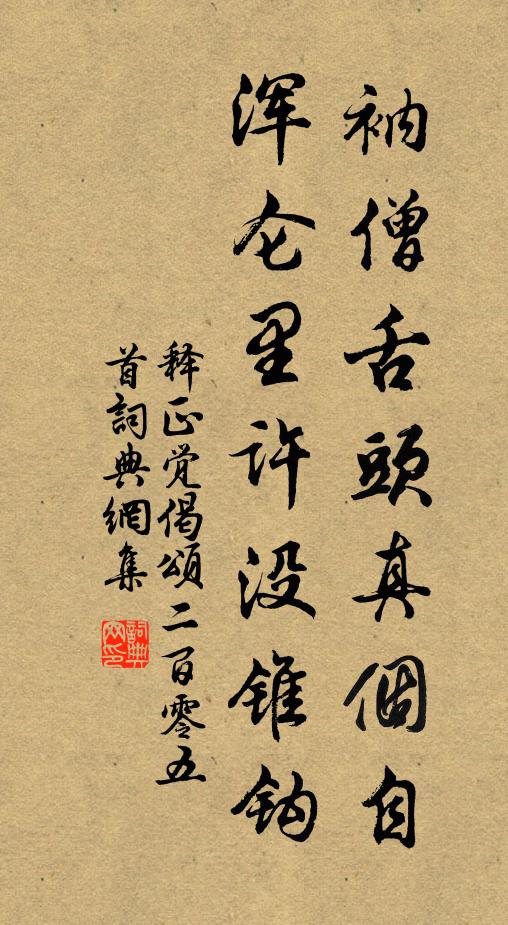 衲僧舌頭真個自
浑仑里许没锥钩
释正觉偈頌二百零五
首詞典網集
詞典
网印